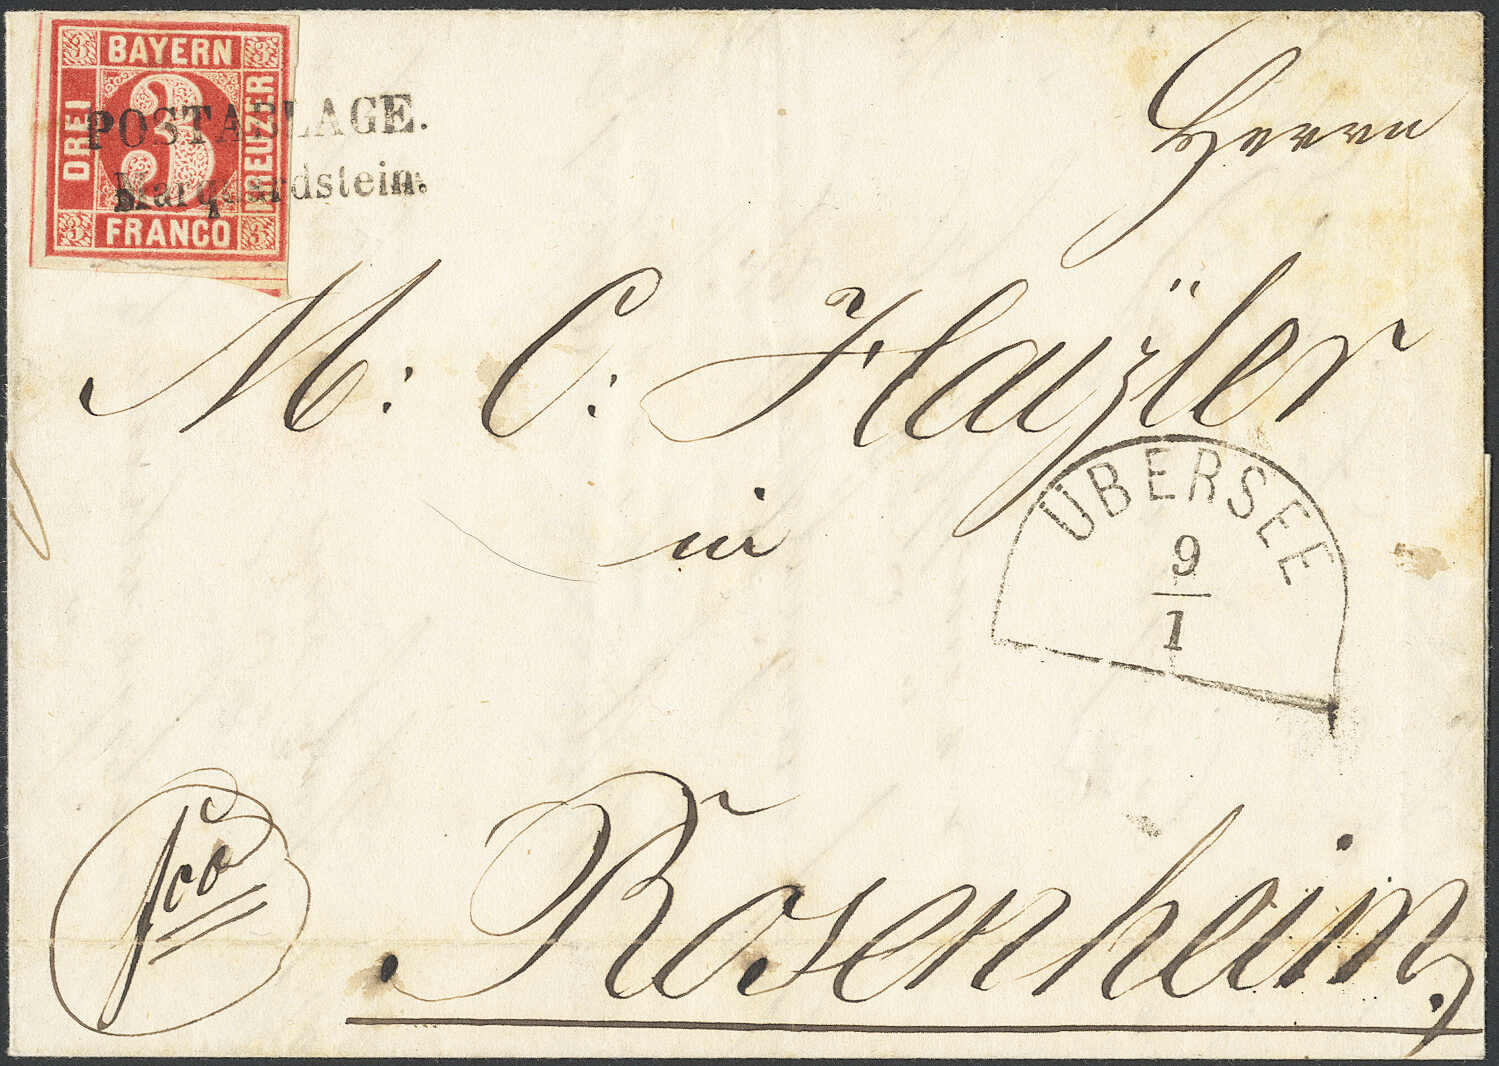 BAYERN
DREI
3
KREUZER
FRANCO
3 3 3 3
POSTABLAGE.
Marquardstein.
Herrn
M: C. 
in
ÜBERSEE
9
1
fco
Rosenheim.